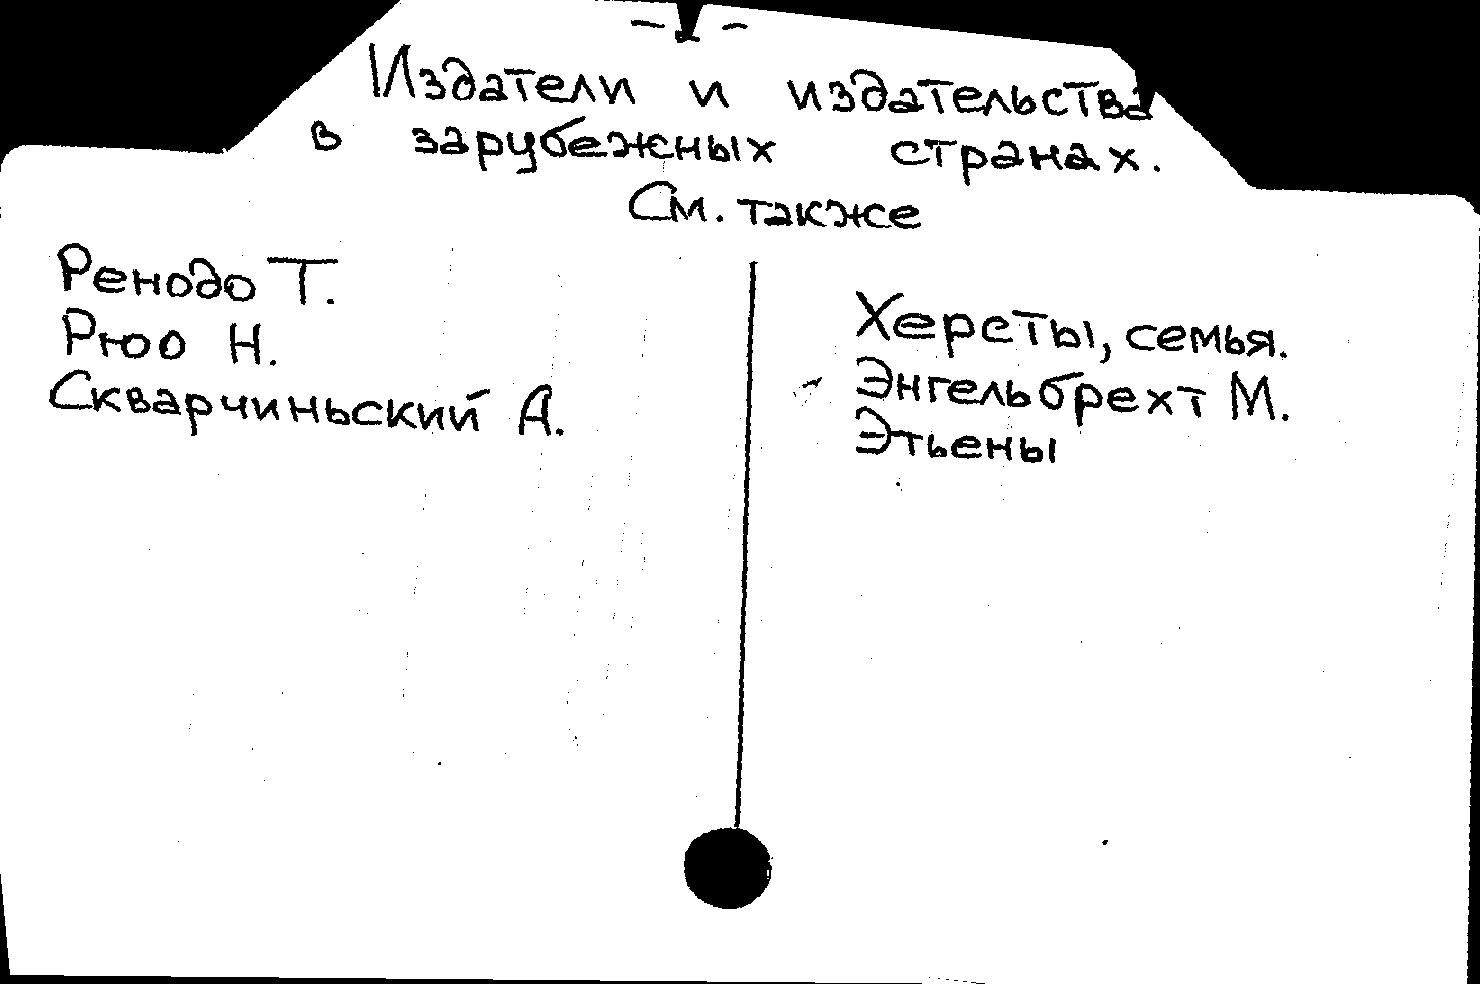 Издатели и издательства
в зарубежных странах.
См. также
Ренодо Т.
Рюо Н.
Скварчиньский А.
Херсты, семья.
Энгельбрехт М.
Этьены